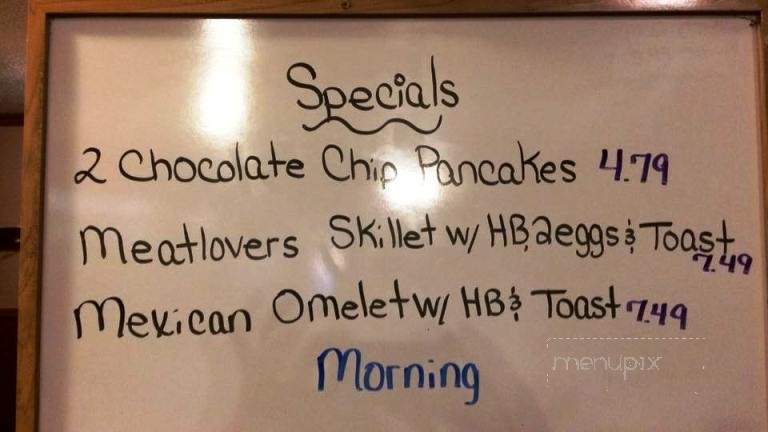 Specials
2 Chocolate Chip Pancakes 4.79
Meatlovers Skillet w/ HB, 2eggs & Toast 7.49
Mexican Omelet w/ HB & Toast 7.49
Morning
menupix